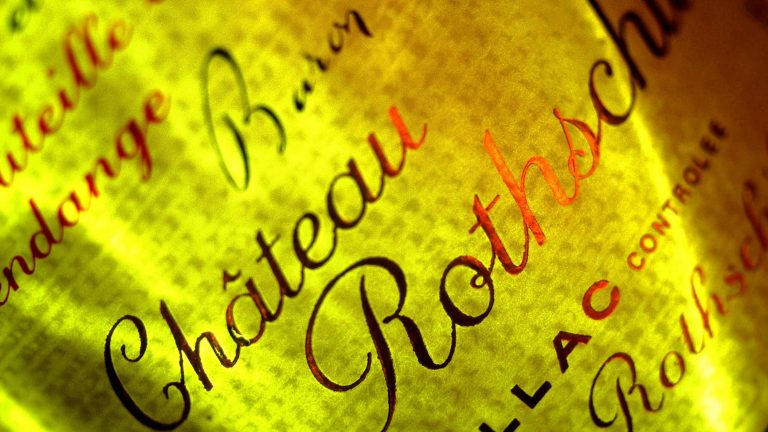 uteille
endange
Baron
Château
Rothschil
LLAC CONTROLÉE
Rothsch